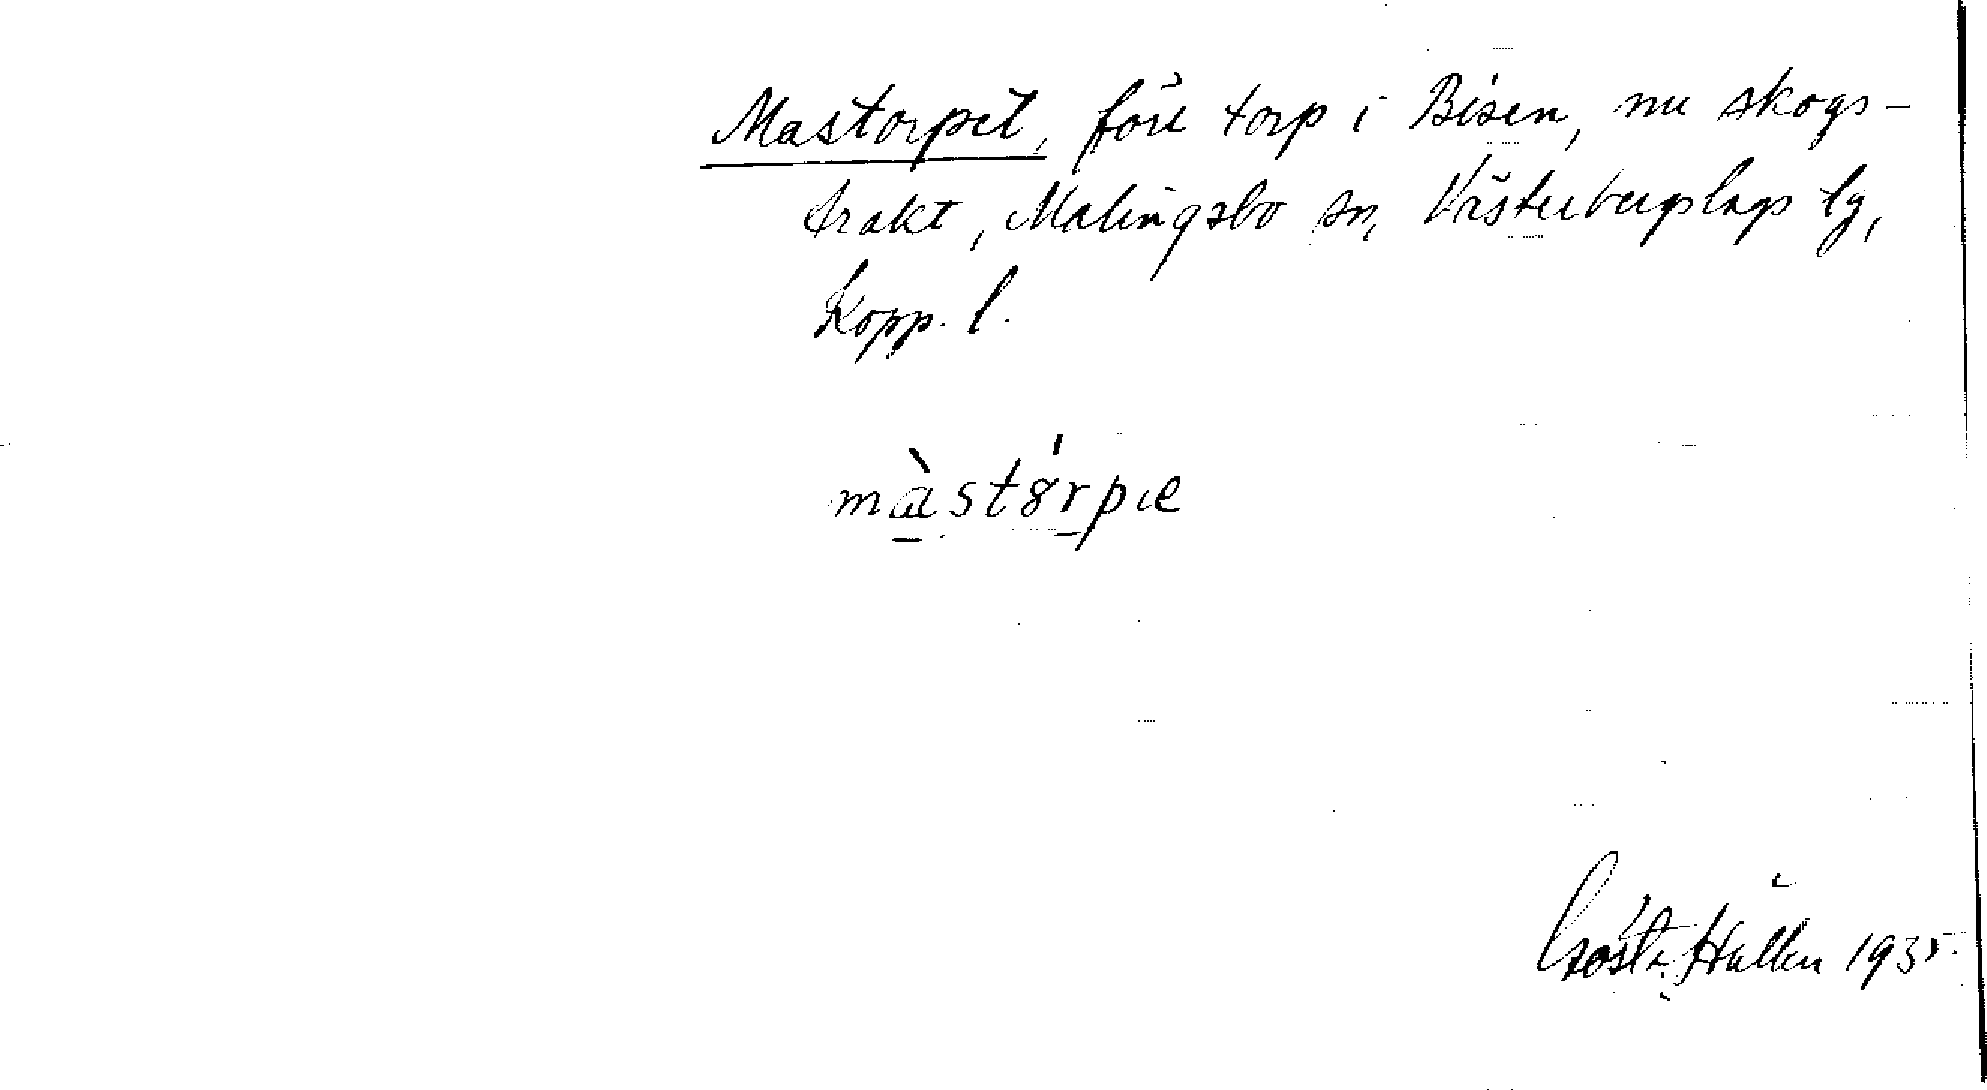 Mastorpet, före torp i Bisen, nu skogs-
trakt, Malingsbo sn, Västerbergslags lg,
Kopp. l.
màstórpɩe
Gösta Hallén 1935.